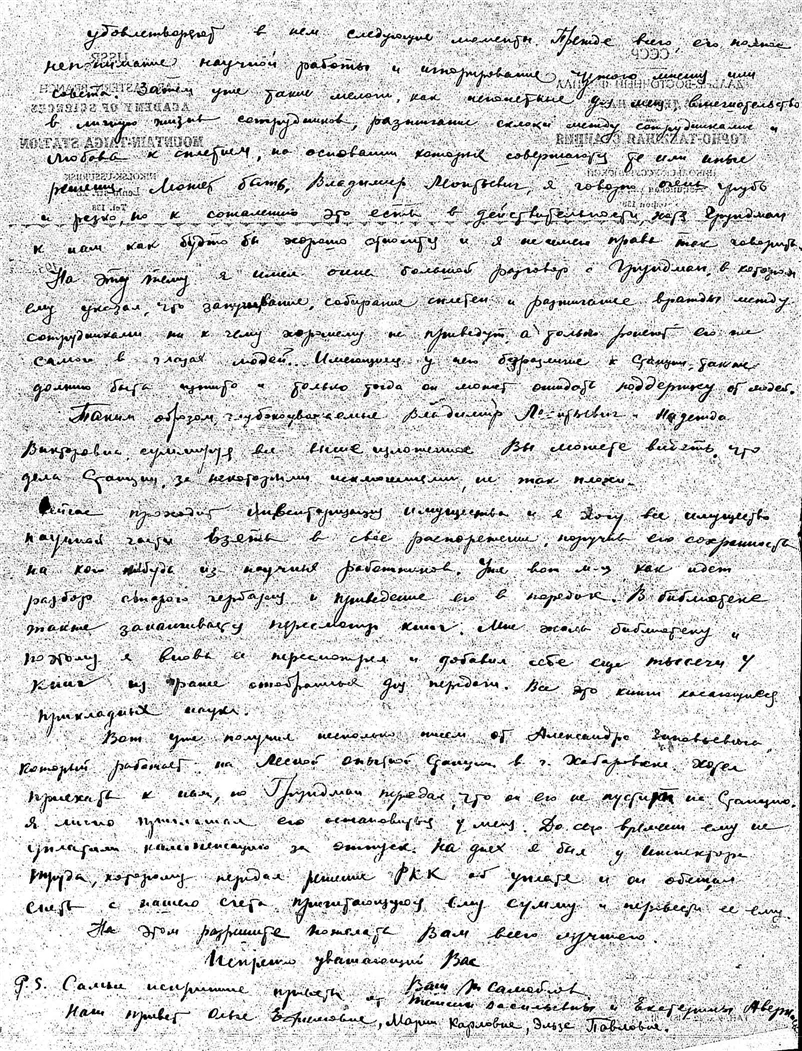 удовлетворяют в нем следующие моменты. Прежде всего, его полное
непонимание научной работы и игнорирование чужого мнения или
совета. Затем уже такие мелочи, как непонятные для меня вмешательство
в личную жизнь сотрудников, разжигание склоки между сотрудниками и
любовь к сплетням, на основании которых совершаются те или иные
решения. Может быть, Владимир Леонтьевич, я говорю очень грубо
и резко, но к сожалению это есть в действительности, хотя Грундман
к нам как будто бы хорошо относится и я не имею права так говорить.
На эту тему я имел очень большой разговор с Грундман, в котором
ему указал, что запугивание, собирание сплетен и разжигание вражды между
сотрудниками ни к чему хорошему не приведут, а только ронют его же
самого в глазах людей. Имеющиеся у него безразличие к Станции также
должно быть изжито и только тогда он может ожидать поддержку от людей.
Таким образом, глубокоуважаемые Владимир Леонтьевич и Надежда
Викторовна, суммируя все выше изложенное Вы можете видеть, что
дела Станции, за некоторыми исключениями, не так плохи.
Сейчас проходит инвентаризация имущества и я хочу все имущество
научной части взять в свое распоряжение, поручив его сохранность
на кого нибудь из научных работников. Уже вот м-ц как идет
разбор старого гербария и приведение его в порядок. В библиотеке
также заканчивается пересмотр книг. Мне жаль библиотеку и
поэтому я вновь ее пересмотрел и добавил себе еще тысячи 4
книг из ранее отобранных для передачи. Все это книги касающиеся
прикладных наук.
Вот уже получил несколько писем от Александра Зиновьевича,
который работает на Лесной опытной Станции в г. Хабаровске. Хотел
приехать к нам, но Грундман передал, что он его не пустит на Станцию.
Я лично приглашал его остановиться у меня. До сего времени ему не
уплатили компенсацию за отпуск. На днях я был у инспектора
труда, которому передал решение РКК об уплате и он обещал
снять с нашего счета причитающуюся ему сумму и перевести ее ему.
На этом разрешите пожелать Вам всего лучшего.
Искренно уважающий Вас
Ваш Самойлов
P.S. Самые искренние приветы от Таисии Васильевны и Екатерины
Наш привет Ольге Ефимовне, Марии Карловне, Эльзе Павловне.